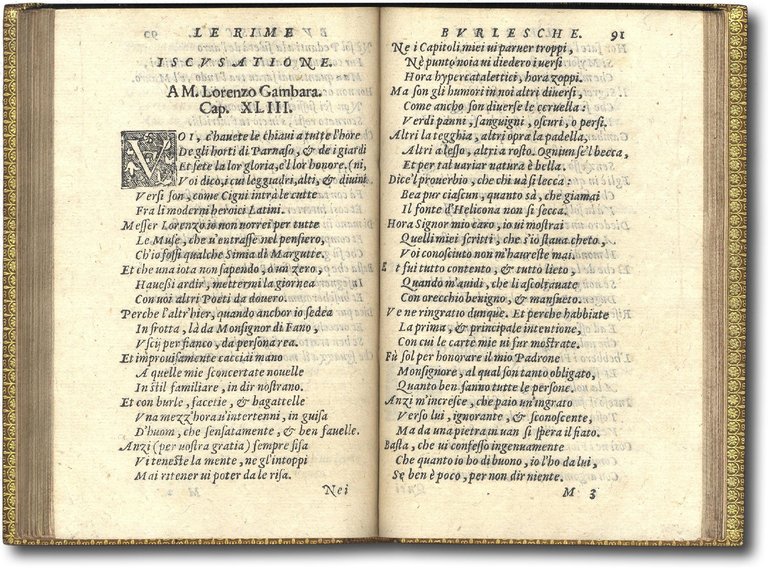 LE RIME
ISCVSATIONE.
A M. Lorenzo Gambara.
Cap. XLIII.
VOI, c'hauete le chiaui a tutte l'hore
De gli horti di Parnaso, & de i giardi
Et sete la lor gloria, e'l lor honore. (ni,
Voi dico, i cui leggiadri, alti, & diuini
Versi son, come Cigni intrà le cutte
Fra li moderni heroici Latini.
Messer Lorenzo io non vorrei per tutte
Le Muse, che u'entrasse nel pensiero,
Ch'io fossi qualche Simia di Margutte.
Et che una iota non sapendo, ò un zero,
Hauessi ardir, mettermi la giornea
Con uoi altri Poeti da douero.
Perche l'altr'hier, quando anchor io sedea
In frotta, là da Monsignor di Fano,
Vscij per fianco, da persona rea.
Et improuisamente cacciai mano
A quelle mie sconcertate nouelle
In stil familiare, in dir nostrano.
Et con burle, facetie, & bagattelle
Vna mezz'hora u'intertenni, in guisa
D'huom, che sensatamente, & ben fauelle.
Anzi (per uostra gratia) sempre fisa
Vi teneste la mente, ne gl'intoppi
Mai ritener ui poter da le risa.
Nei
BVRLESCHE. 91
Ne i Capitoli miei ui paruer troppi,
Nè punto noia ui diedero i uersi
Hora hypercatalettici, hora zoppi.
Ma son gli humori in noi altri diuersi,
Come ancho son diuerse le ceruella:
Verdi panni, sanguigni, oscuri, o persi,
Altri la tegghia, altri opra la padella,
Altri a lesso, altri a rosto. Ogniun se'l becca,
Et per tal uariar natura è bella.
Dice'l prouerbio, che chi uà si lecca:
Bea pur ciascun, quanto sà, che giamai
Il fonte d'Helicona non si secca.
Hora Signor mio caro, io ui mostrai
Quelli miei scritti, che s'io staua cheto,
Voi conosciuto non m'haureste mai.
Et fui tutto contento, & tutto lieto,
Quando m'auidi, che li ascoltauate
Con orecchio benigno, & mansueto.
Ve ne ringratio dunque. Et perche habbiate
La prima, & principale intentione,
Con cui le carte mie ui fur mostrate.
Fù sol per honorare il mio Padrone
Monsignore, al qual son tanto obligato,
Quanto ben fanno tutte le persone.
Anzi m'incresce, che paio un'ingrato
Verso lui, ignorante, & sconoscente,
Ma da una pietra in uan si spera il fiato.
Basta, che ui confesso ingenuamente
Che quanto io ho di buono, io l'ho da lui,
Se ben è poco, per non dir niente.
M 3